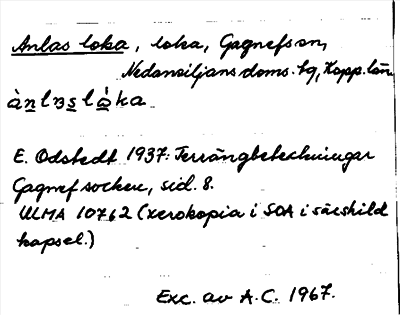 Anlas loka, loka, Gagnefs sn,
Nedansiljans doms. hg, Kopp. län
E. Odstedt 1937: Terrängbeteckningar
Gagnef socken, sid. 8.
ULMA 10762 (xerokopia i SOA i särskild
kapsel.)
Exc. av A.C. 1967.